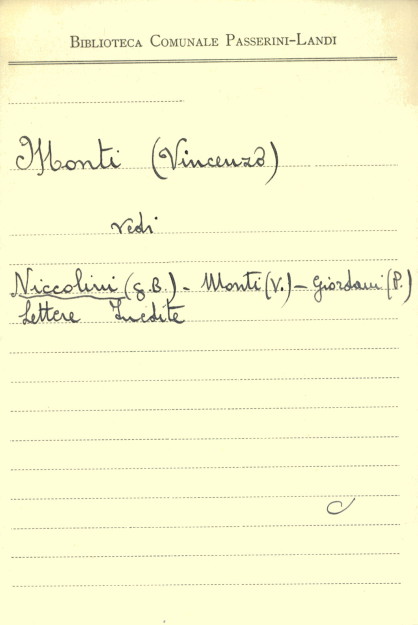 BIBLIOTECA COMUNALE PASSERINI-LANDI
Monti (Vincenzo)
vedi
Niccolini (G.B.) - Monti (V.) - Giordani (P.)
Lettere Inedite
C